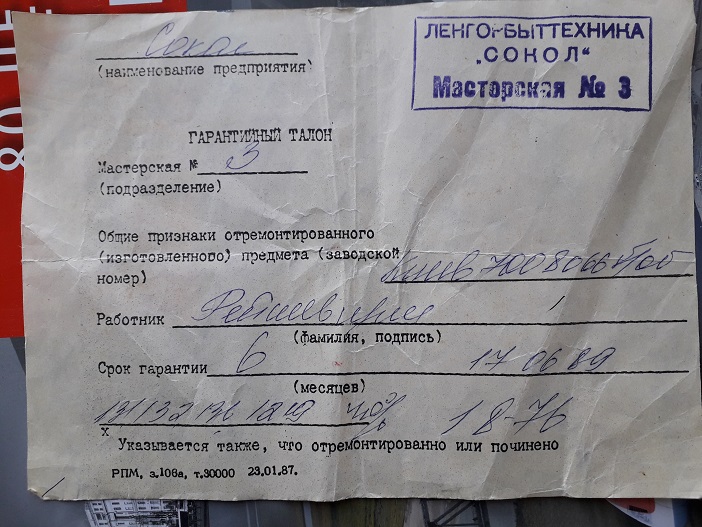 ЛЕНГОРБЫТТЕХНИКА
„СОКОЛ"
Масторская № 3
Сокол
(наименование предприятия)
ГАРАНТИЙНЫЙ ТАЛОН
Мастерская № 3
(подразделение)
Общие признаки отремонтированного
(изготовленного) предмета (заводской
номер) Киев
Работник
(фамилия, подпись)
Срок гарантии 6 17 06 89
(месяцев)
131 132 136 1219 40% 18-76
х
Указывается также, что отремонтированно или починено
РПМ, з.106а, т.30000 23.01.87.